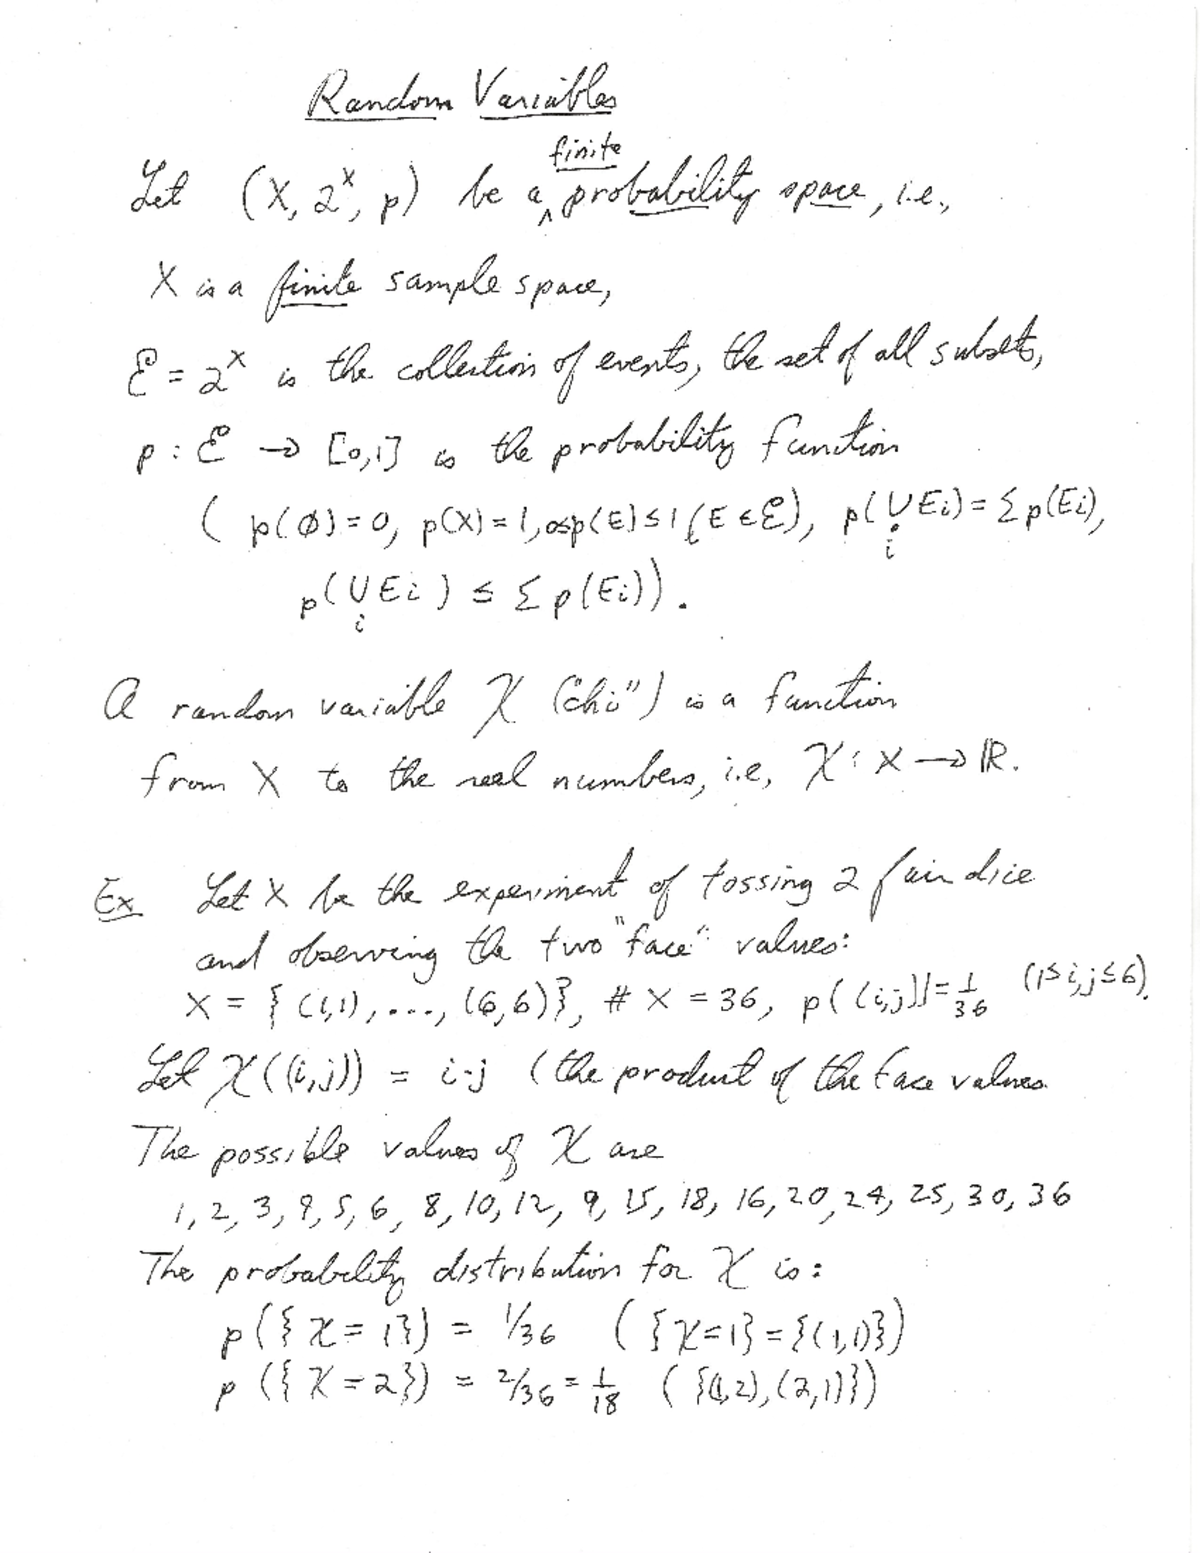 Random Variables
finite
Let (X, 2^X, p) be a ^ probability space, i.e.,
X is a finite sample space,
ℰ = 2^X is the collection of events, the set of all subsets,
p : ℰ → [0,1] is the probability function
( p(∅) = 0, p(X) = 1, 0≤p(E)≤1 (E ∈ ℰ), p(⋃̣_i Ei) = Σ p(Ei),
p(⋃_i Ei) ≤ Σ p(Ei)).
A random variable χ ("chi") is a function
from X to the real numbers, i.e, χ : X → ℝ.
Ex Let X be the experiment of tossing 2 fair dice
and observing the two "face" values:
X = {(1,1), ..., (6,6)}, # X = 36, p((i,j)) = 1/36 (1≤i,j≤6).
Let χ((i,j)) = i·j (the product of the face values
The possible values of χ are
1, 2, 3, 4, 5, 6, 8, 10, 12, 9, 15, 18, 16, 20, 24, 25, 30, 36
The probability distribution for χ is:
p({χ = 1}) = 1/36 ({χ=1} = {(1,1)})
p({χ = 2}) = 2/36 = 1/18 ({(1,2), (2,1)})